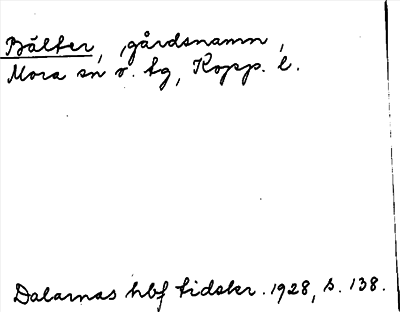 Bälter, gårdsnamn,
Mora sn o. tg, Kopp. l.
Dalarnas hbf tidskr. 1928, s. 138.